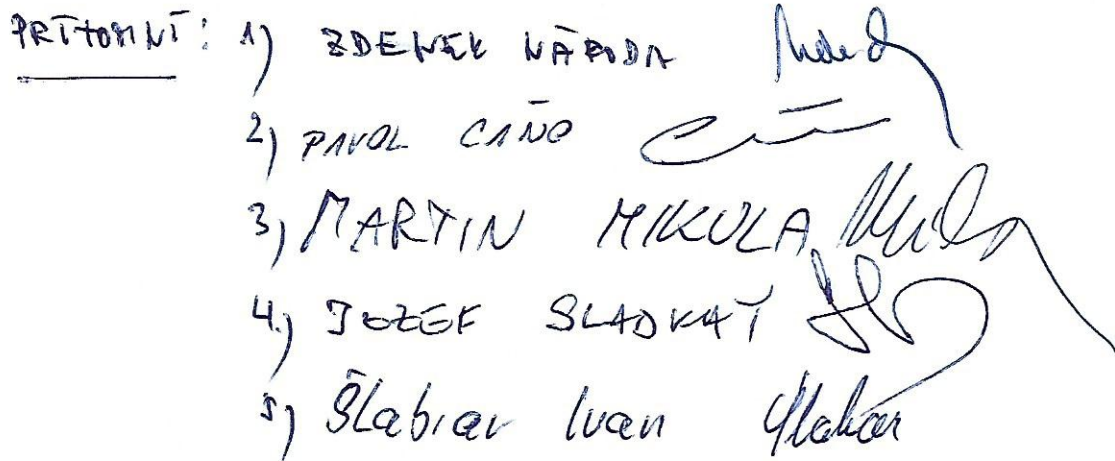 PRÍTOMNÍ: 1) ZDENEK NÁRODA
2) PAVOL CAŇO
3) MARTIN MIKULA
4.) JOZEF SLADKAY
5) Šlabiar Ivan